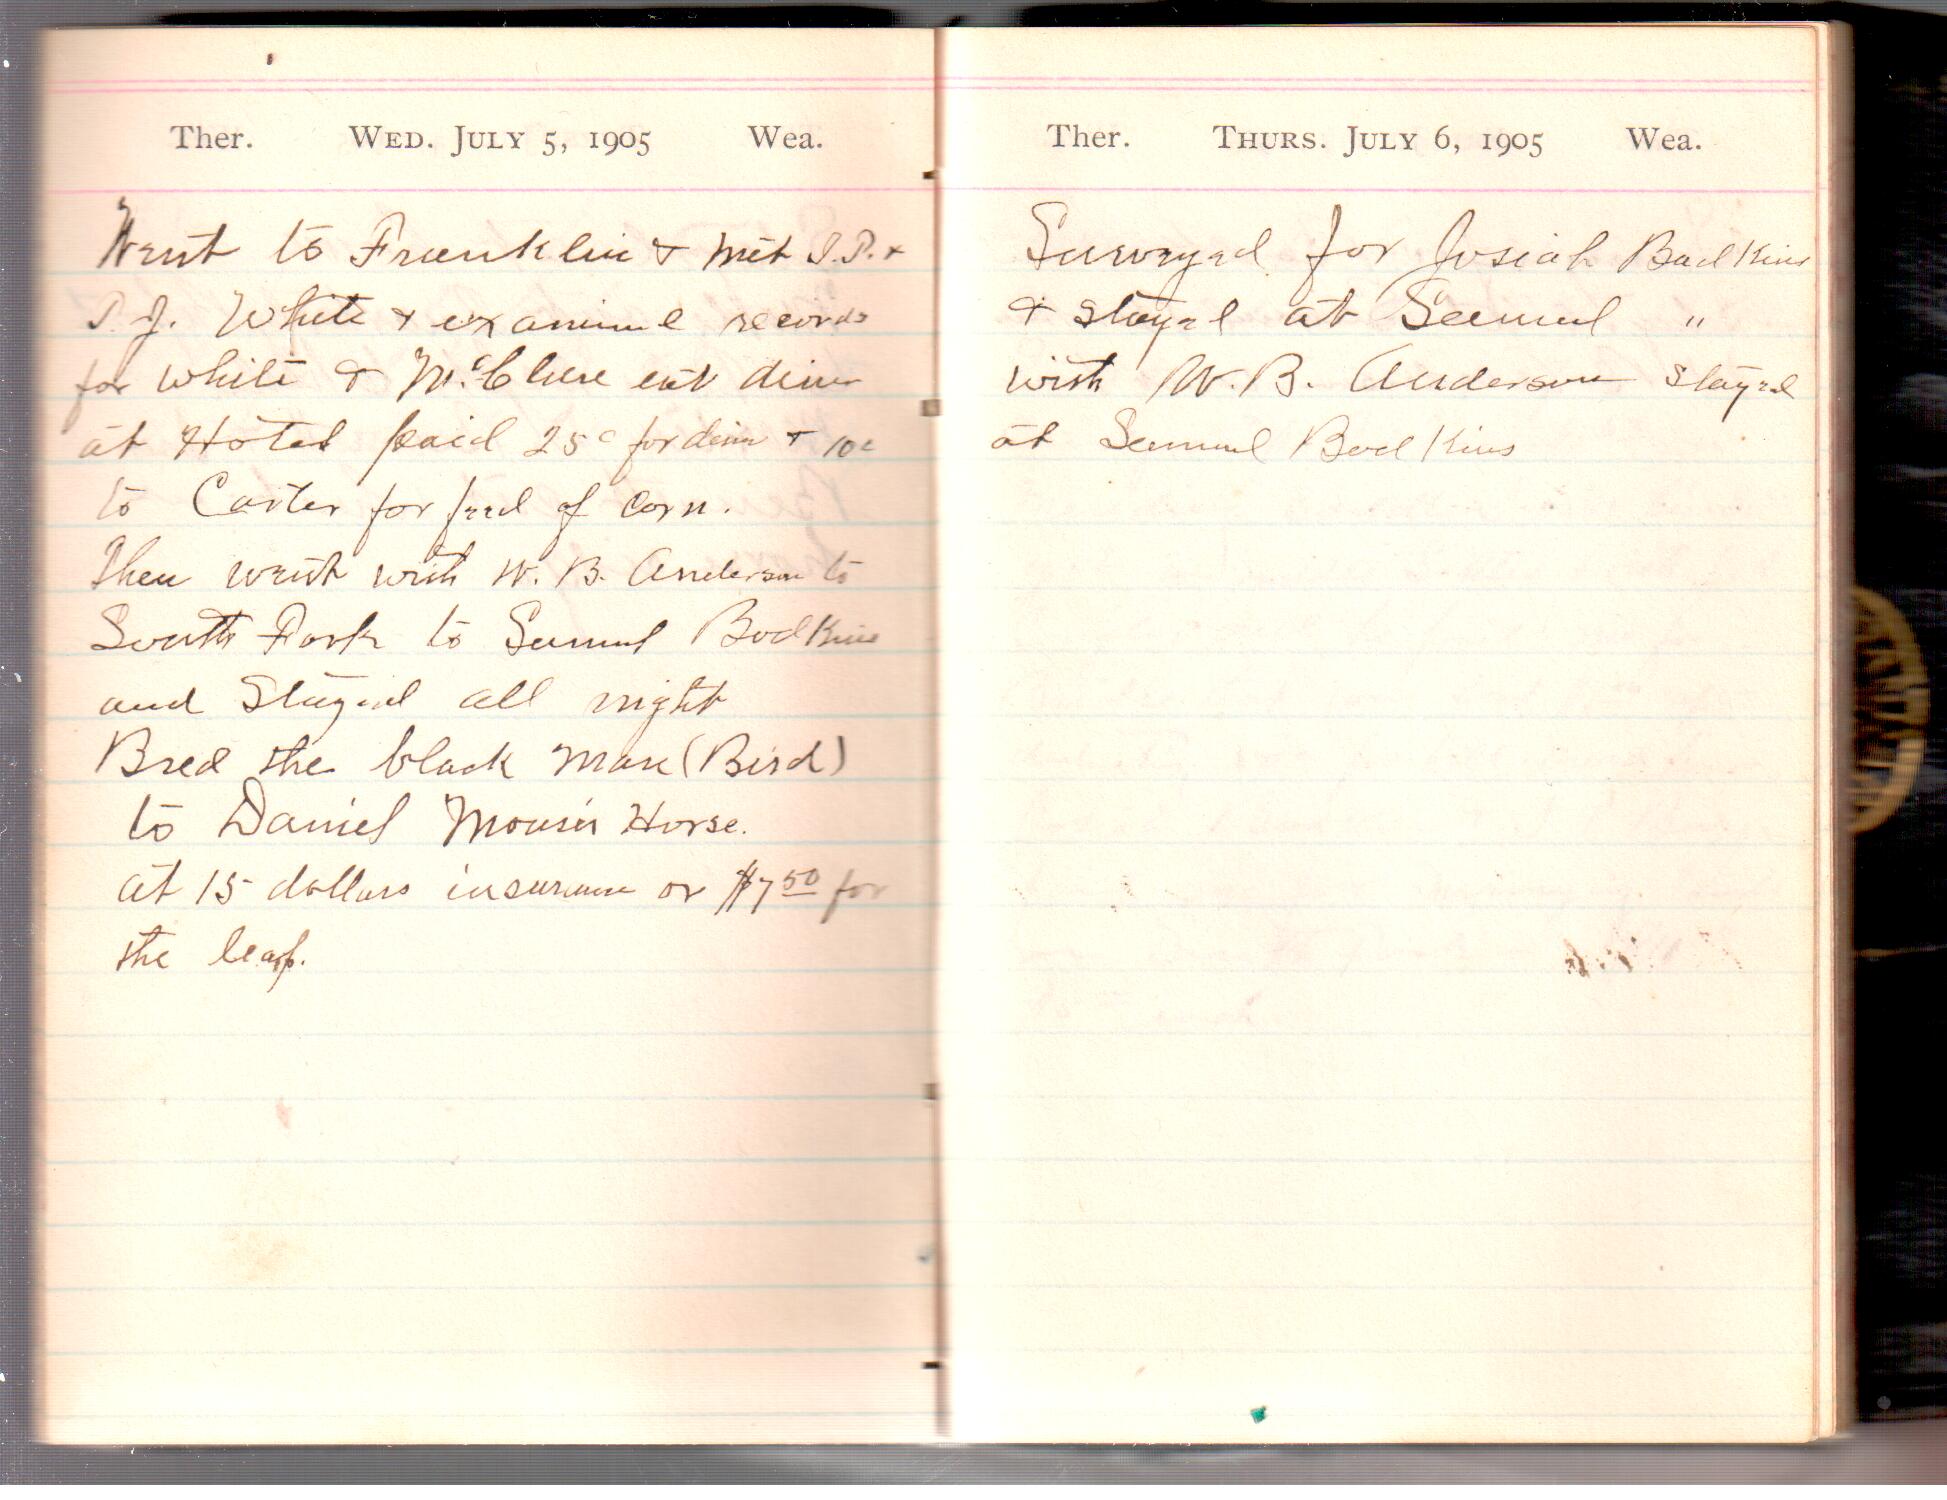 Ther. WED. JULY 5, 1905 Wea.
Went to Franklin & met I.P. &
P. J. White & examined records
for White & McClure eat diner
at Hotel paid 25c for diner & 10c
to Carter for feed of corn.
Then went with W. B. Anderson to
South Fork to Samuel Bodkins
and Stayed all night
Bred the black mare (Bird)
to Daniel Mouser Horse.
at 15 dollars insurance or $7 50 for
the leap.
Ther. THURS. JULY 6, 1905 Wea.
Surveyed for Josiah Bodkins
& stayed at Samuel "
with W. B. Anderson stayed
at Samuel Bodkins